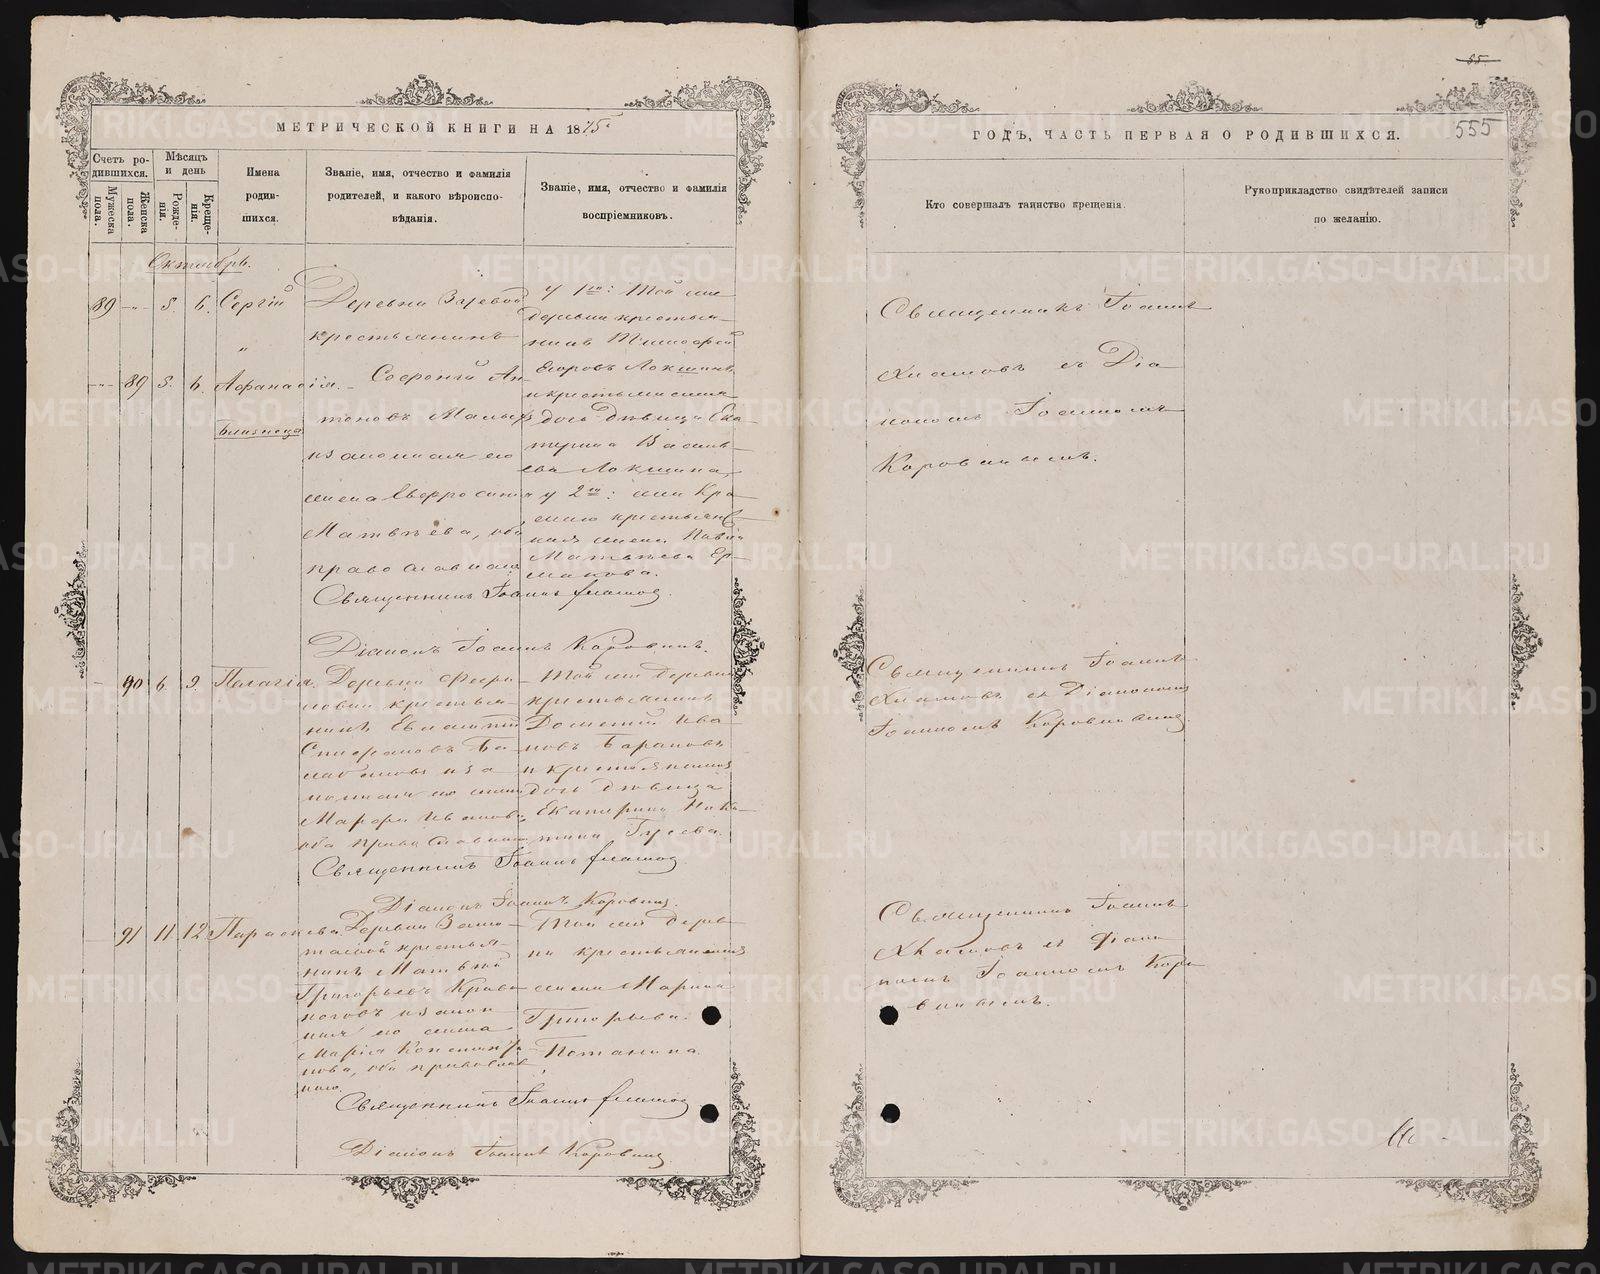 МЕТРИЧЕСКОЙ КНИГИ НА 1875
Счетъ ро-
дившихся.
Мужеска
пола.
Женска
пола.
Мѣсяцъ
и день
Рожде-
нія.
Креще-
нія.
Имена
родив-
шихся.
Званіе, имя, отчество и фамилія
родителей, и какого вѣроиспо-
вѣданія.
Званіе, имя, отчество и фамилія
воспріемниковъ.
Октябрь.
89 5. 6. Сергій
89 5. 6. Афанасія.
близнецы
Деревни
крестьянинъ
Софроній Ан-
тоновъ
и законная его
жена Евфросинія
Матвѣева, оба
православные
у 1го: Той же
деревни крестья-
нинъ Тимофей
Егоровъ Локшинъ
и крестьянская
дочь дѣвица Ека-
терина Василь-
ева Локшина,
у 2го:
крестьянс-
кая жена
Матвѣева Ер-
макова.
Священникъ Іоаннъ Хламовъ
Діаконъ Іоаннъ Коровинъ.
90 6. 9. Пелагія.
Деревни
крестья-
нинъ Евлампій
Стефановъ Ба-
лабановъ и за-
конная его жена
Марфа Иванова,
оба православные
Той же деревни
крестьянинъ
Дометій Ива-
новъ Барановъ
и крестьянская
дочь дѣвица
Екатерина Ники-
тина Гусева.
Священникъ Іоаннъ Хламовъ
Діаконъ Іоаннъ Коровинъ.
91 11 12 Параскева.
Деревни
крестья-
нинъ Матвѣй
Григорьевъ
и закон-
ная его жена
Марія Константи-
нова, оба православ-
ные.
Той же дерев-
ни крестьянская
жена Марина
Григорьева
Потанина.
Священникъ Іоаннъ Хламовъ
Діаконъ Іоаннъ Коровинъ
85
555
ГОДЪ, ЧАСТЬ ПЕРВАЯ О РОДИВШИХСЯ.
Кто совершалъ таинство крещенія.
Рукоприкладство свидѣтелей записи
по желанію.
Священникъ Іоаннъ
Хламовъ съ Діа-
кономъ Іоанномъ
Коровинымъ.
Священникъ Іоаннъ
Хламовъ съ Діакономъ
Іоанномъ Коровинымъ
Священникъ Іоаннъ
Хламовъ съ Діако-
номъ Іоанномъ Коро-
винымъ.
METRIKI.GASO-URAL.RU